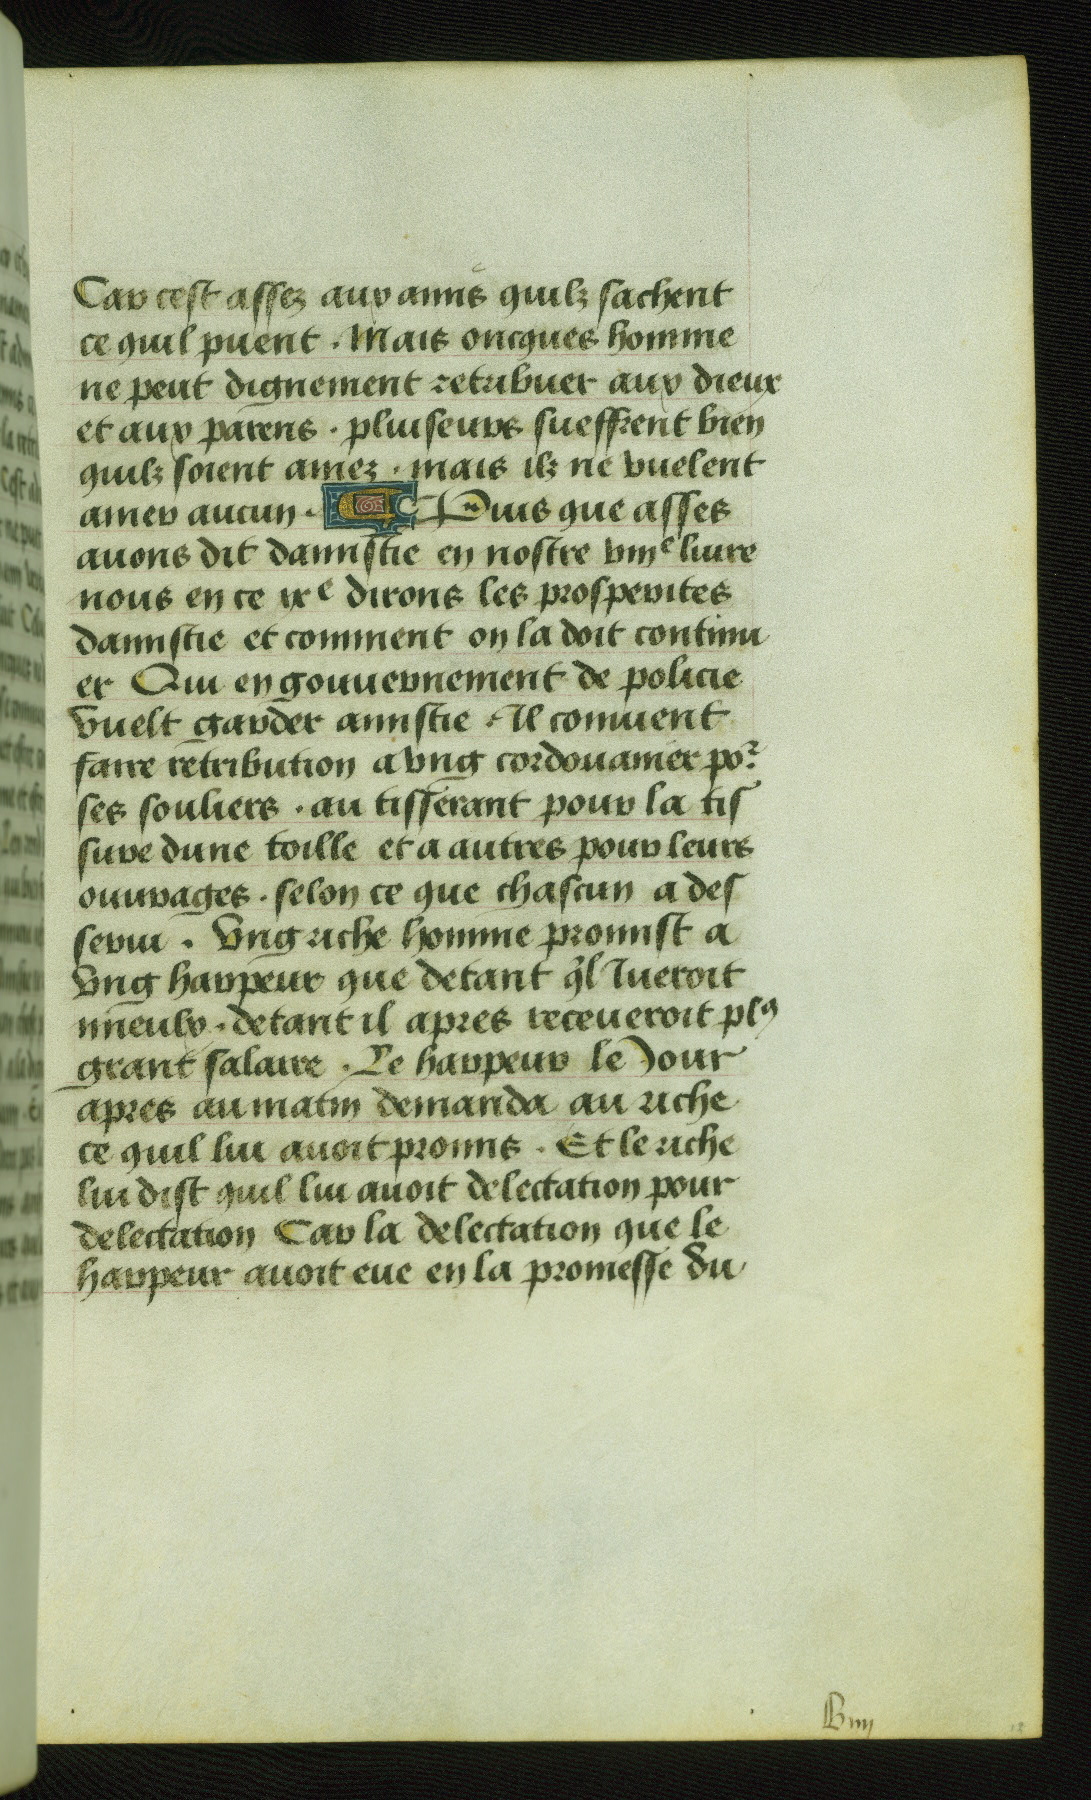 Car cest assez aux amis quilz sachent
ce quil puent . Mais oncques homme
ne peut dignement retribuer aux dieux
et aux parens . pluiseurs sueffrent bien
quilz soient amez . mais ilz ne vuelent
amer aucun . Puis que asses
auons dit damistie en nostre viiie liure
nous en ce ixe dirons les prosperites
damistie et comment on la doit continu
er Qui en gouuernement de policie
vuelt garder amistie . Il conuient
faire retribution a vng cordouanier por
ses souliers . au tisserant pour la tis
sure dune toille et a autres pour leurs
ouurages . selon ce que chascun a des
serui . Vng riche homme promist a
vng harpeur que de tant ql Iueroit
mieulx . de tant il apres receueroit plꝰ
grant salaire . Le harpeur le Jour
apres au matin demanda au riche
ce quil lui auoit promis . Et le riche
lui dist quil lui auoit delectation pour
delectation Car la delectation que le
harpeur auoit eue en la promesse du
B iiij